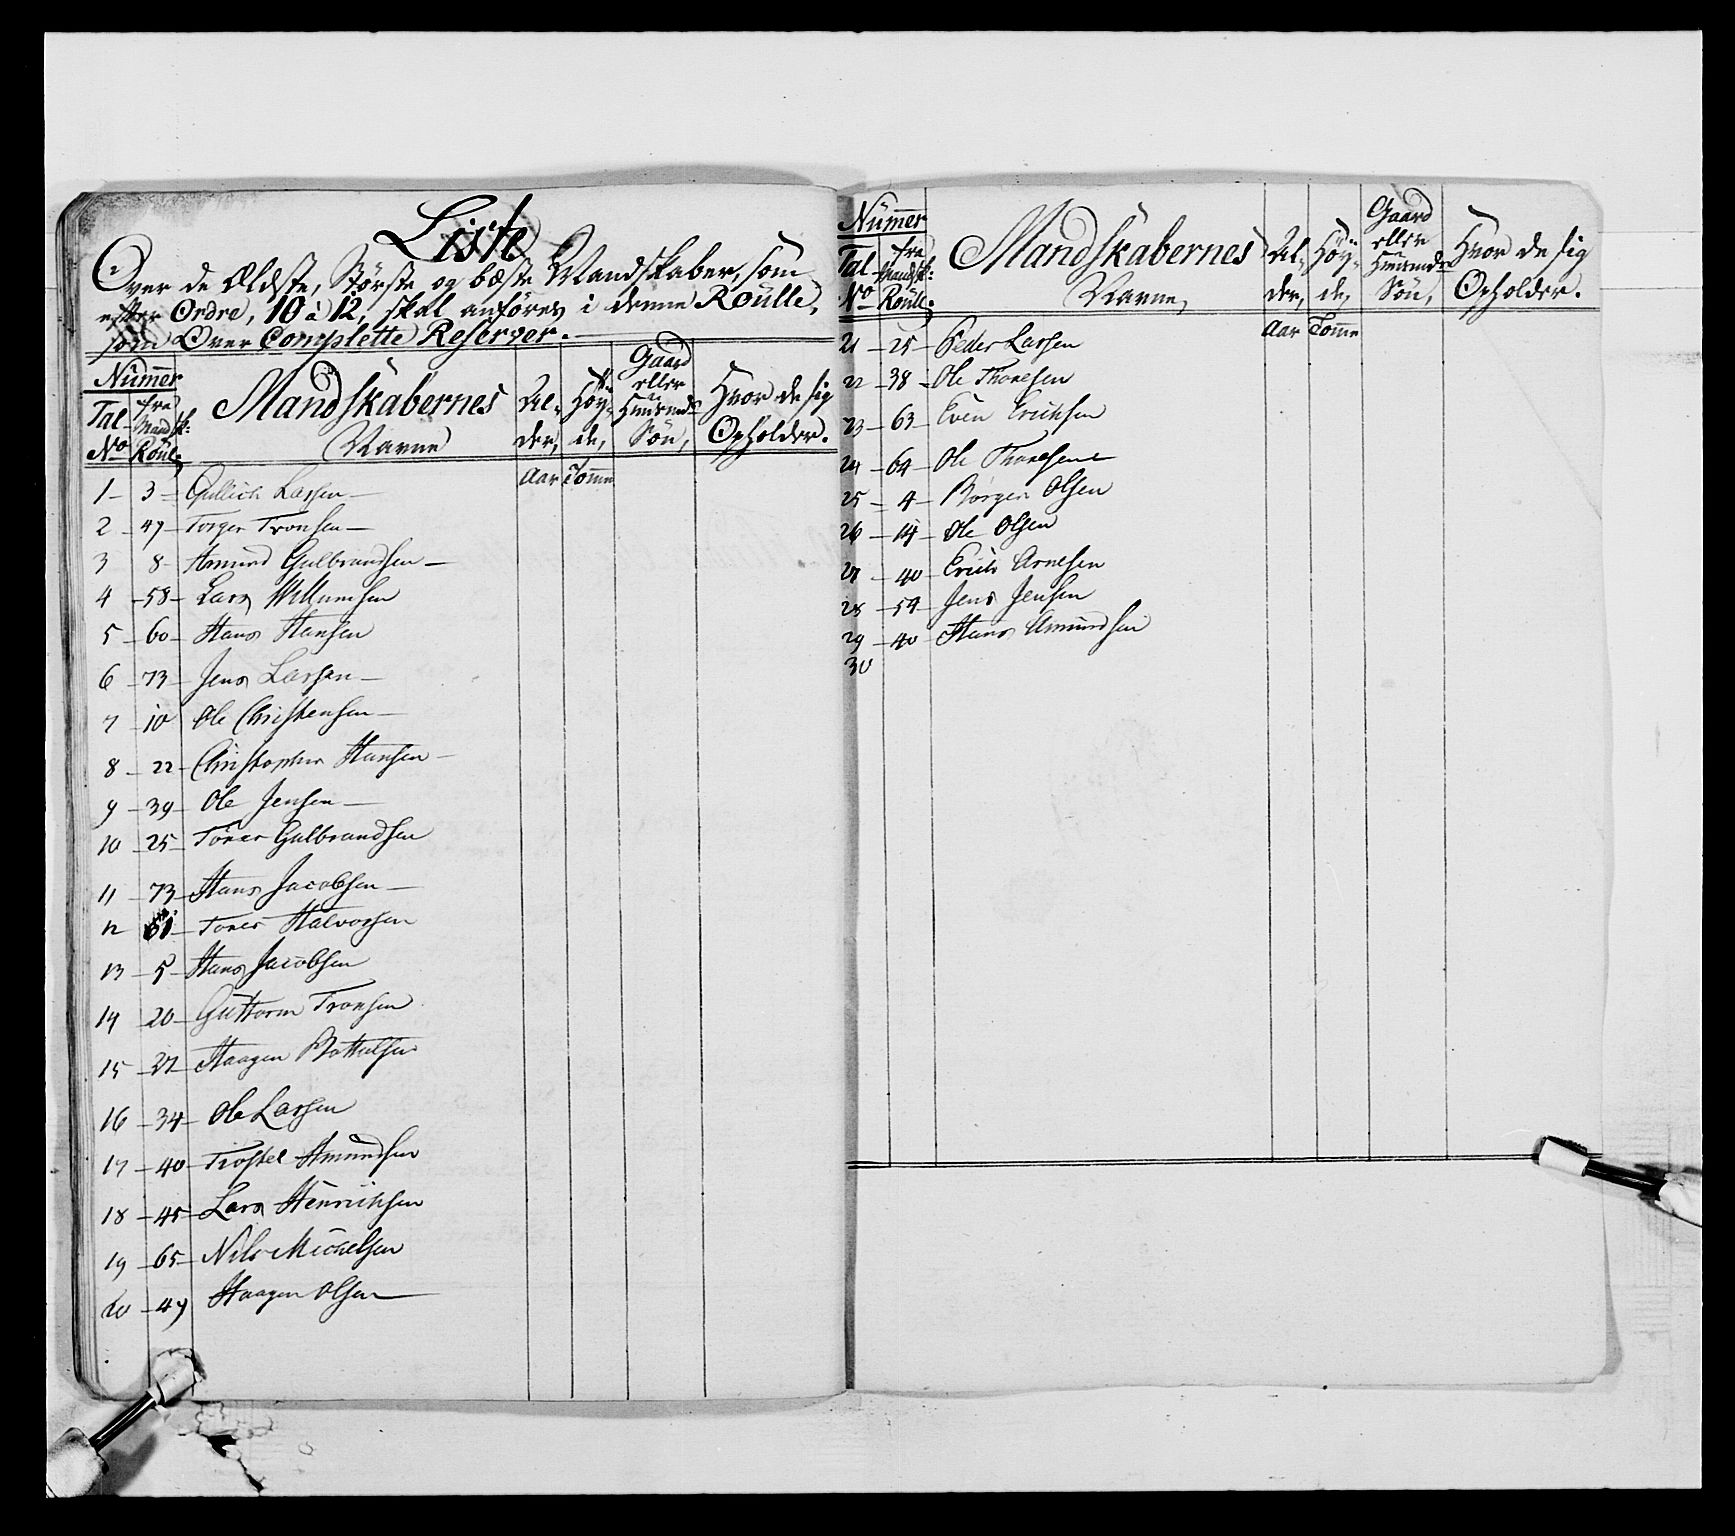 Liste
Over de Ældste, Störste og bæste Mandskaber, som
efter Ordre, 10 à 12, skal anföres i denne Roulle,
som Over Complette Reserver.
Numer
Tal No
fra Mandsk: Roul,
Mandskabernes Navne
Al-der,
Höy-de,
Gaard eller Huusmds Sön,
Hvor de sig Opholder.
Aar Tomme
1 - 3 - Gullich Larsen
2 - 47 - Torger Tronsen
3 8 - Amund Gulbrandsen
4 - 58 - Lars Willumsen
5 - 60 - Hans Hansen
6 - 73 - Jens Larsen
7 - 10 Ole Christensen
8 - 22 - Christopher Hansen
9 - 39 - Ole Jensen
10 - 25 - Torer Gulbrandsen
11 - 73 - Hans Jacobsen
12 61 - Torer Halvorsen
13 - 5 - Hans Jacobsen
14 - 20 - Guttorm Tronsen
15 - 27 - Haagen
16 - 34 - Ole Larsen
17 - 40 - Trostel Amundsen
18 - 45 - Lars Henrichsen
19 - 65 - Nils Mickelsen
20 - 49 Haagen Olsen
Numer
Tal No
fra Mandsk: Roull,
Mandskabernes Navne,
Al-der,
Höy-de,
Gaard eller Huusmds Sön,
Hvor de sig Opholder.
Aar Tomme
21 - 25 - Peder Larsen
22 - 38 - Ole Thoresen
23 - 63 - Even Erichsen
24 - 64 - Ole Thoresen
25 - 4 - Börger Olsen
26 - 14 - Ole Olsen
27 - 40 - Erich Arnesen
28 - 54 - Jens Jensen
29 - 40 - Hans Amundsen
30